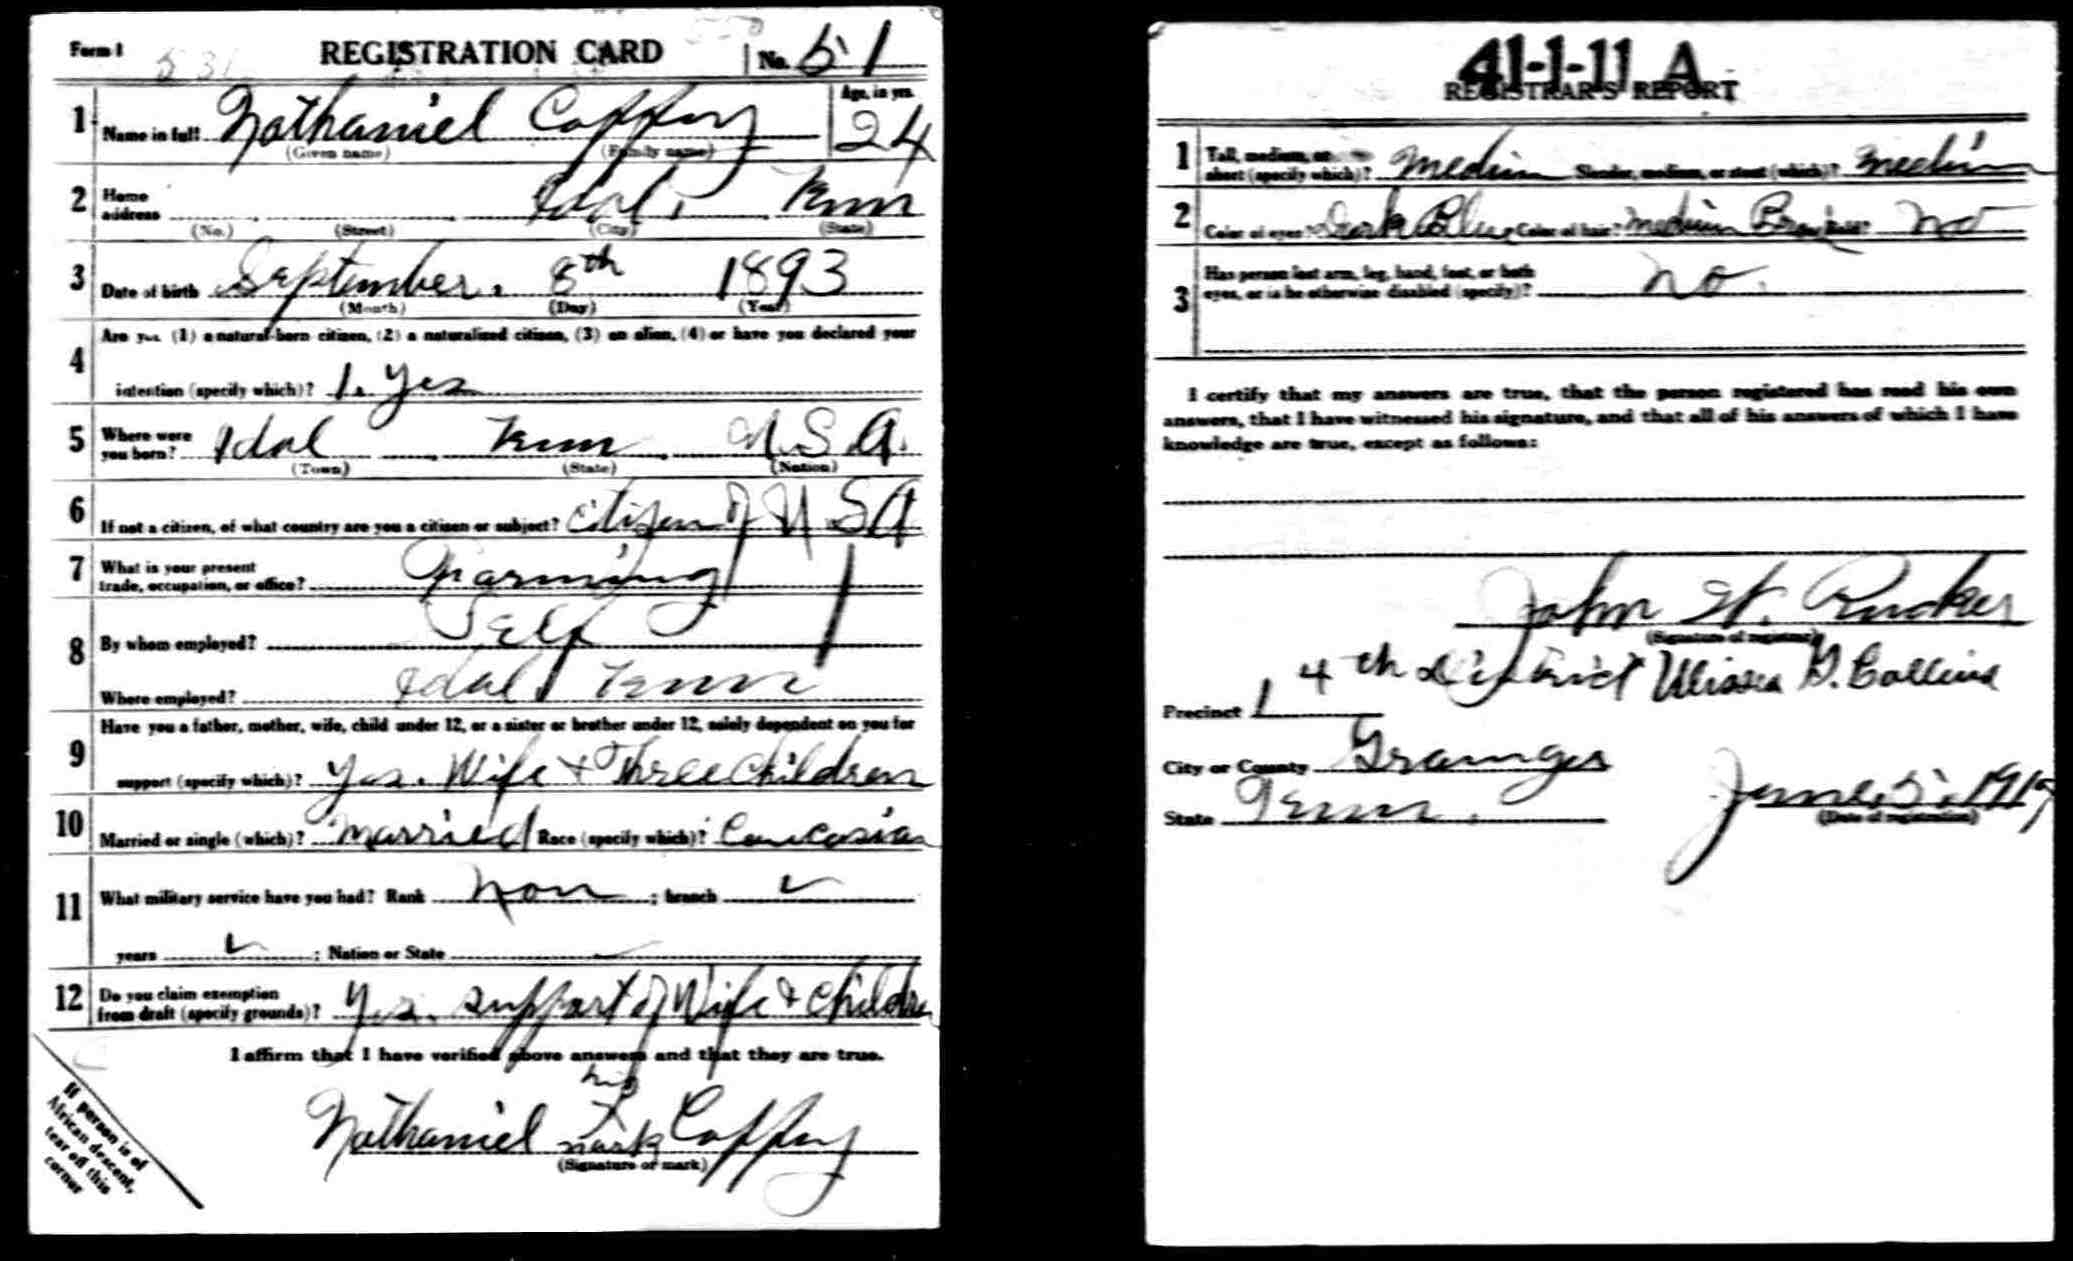 Form 1 531 REGISTRATION CARD 550 No. 51
1 Name in full Nathaniel Coffey Age, in yrs. 24
(Given name) (Family name)
2 Home address Idol, Tenn
(No.) (Street) (City) (State)
3 Date of birth September. 8th 1893
(Month) (Day) (Year)
4 Are you (1) a natural-born citizen, (2) a naturalized citizen, (3) an alien, (4) or have you declared your
intention (specify which)? 1. Yes
5 Where were you born? Idol Tenn U.S.A.
(Town) (State) (Nation)
6 If not a citizen, of what country are you a citizen or subject? Citizen of U S A
7 What is your present
trade, occupation, or office? Farming
8 By whom employed? Self
Where employed? Idol, Tenn
9 Have you a father, mother, wife, child under 12, or a sister or brother under 12, solely dependent on you for
support (specify which)? Yes. Wife + Three Children
10 Married or single (which)? Married Race (specify which)? Caucasian
11 What military service have you had? Rank Non ; branch
years ; Nation or State
12 Do you claim exemption
from draft (specify grounds)? Yes. Support of Wife & Children
I affirm that I have verified above answers and that they are true.
his
Nathaniel X Coffey
mark
(Signature or mark)
If person is of
African descent,
tear off this
corner
41-1-11 A
REGISTRAR'S REPORT
1 Tall, medium, or
short (specify which)? Medium Slender, medium, or stout (which)? Medium
2 Color of eyes? Dark Blue Color of hair? Medium Brown Bald? No
3 Has person lost arm, leg, hand, foot, or both
eyes, or is he otherwise disabled (specify)? No.
I certify that my answers are true, that the person registered has read his own
answers, that I have witnessed his signature, and that all of his answers of which I have
knowledge are true, except as follows:
John W. Rucker
(Signature of registrar)
4th District Ulisses G. Collins
Precinct 1
City or County Grainger
State Tenn. June, 5, 1917
(Date of registration)